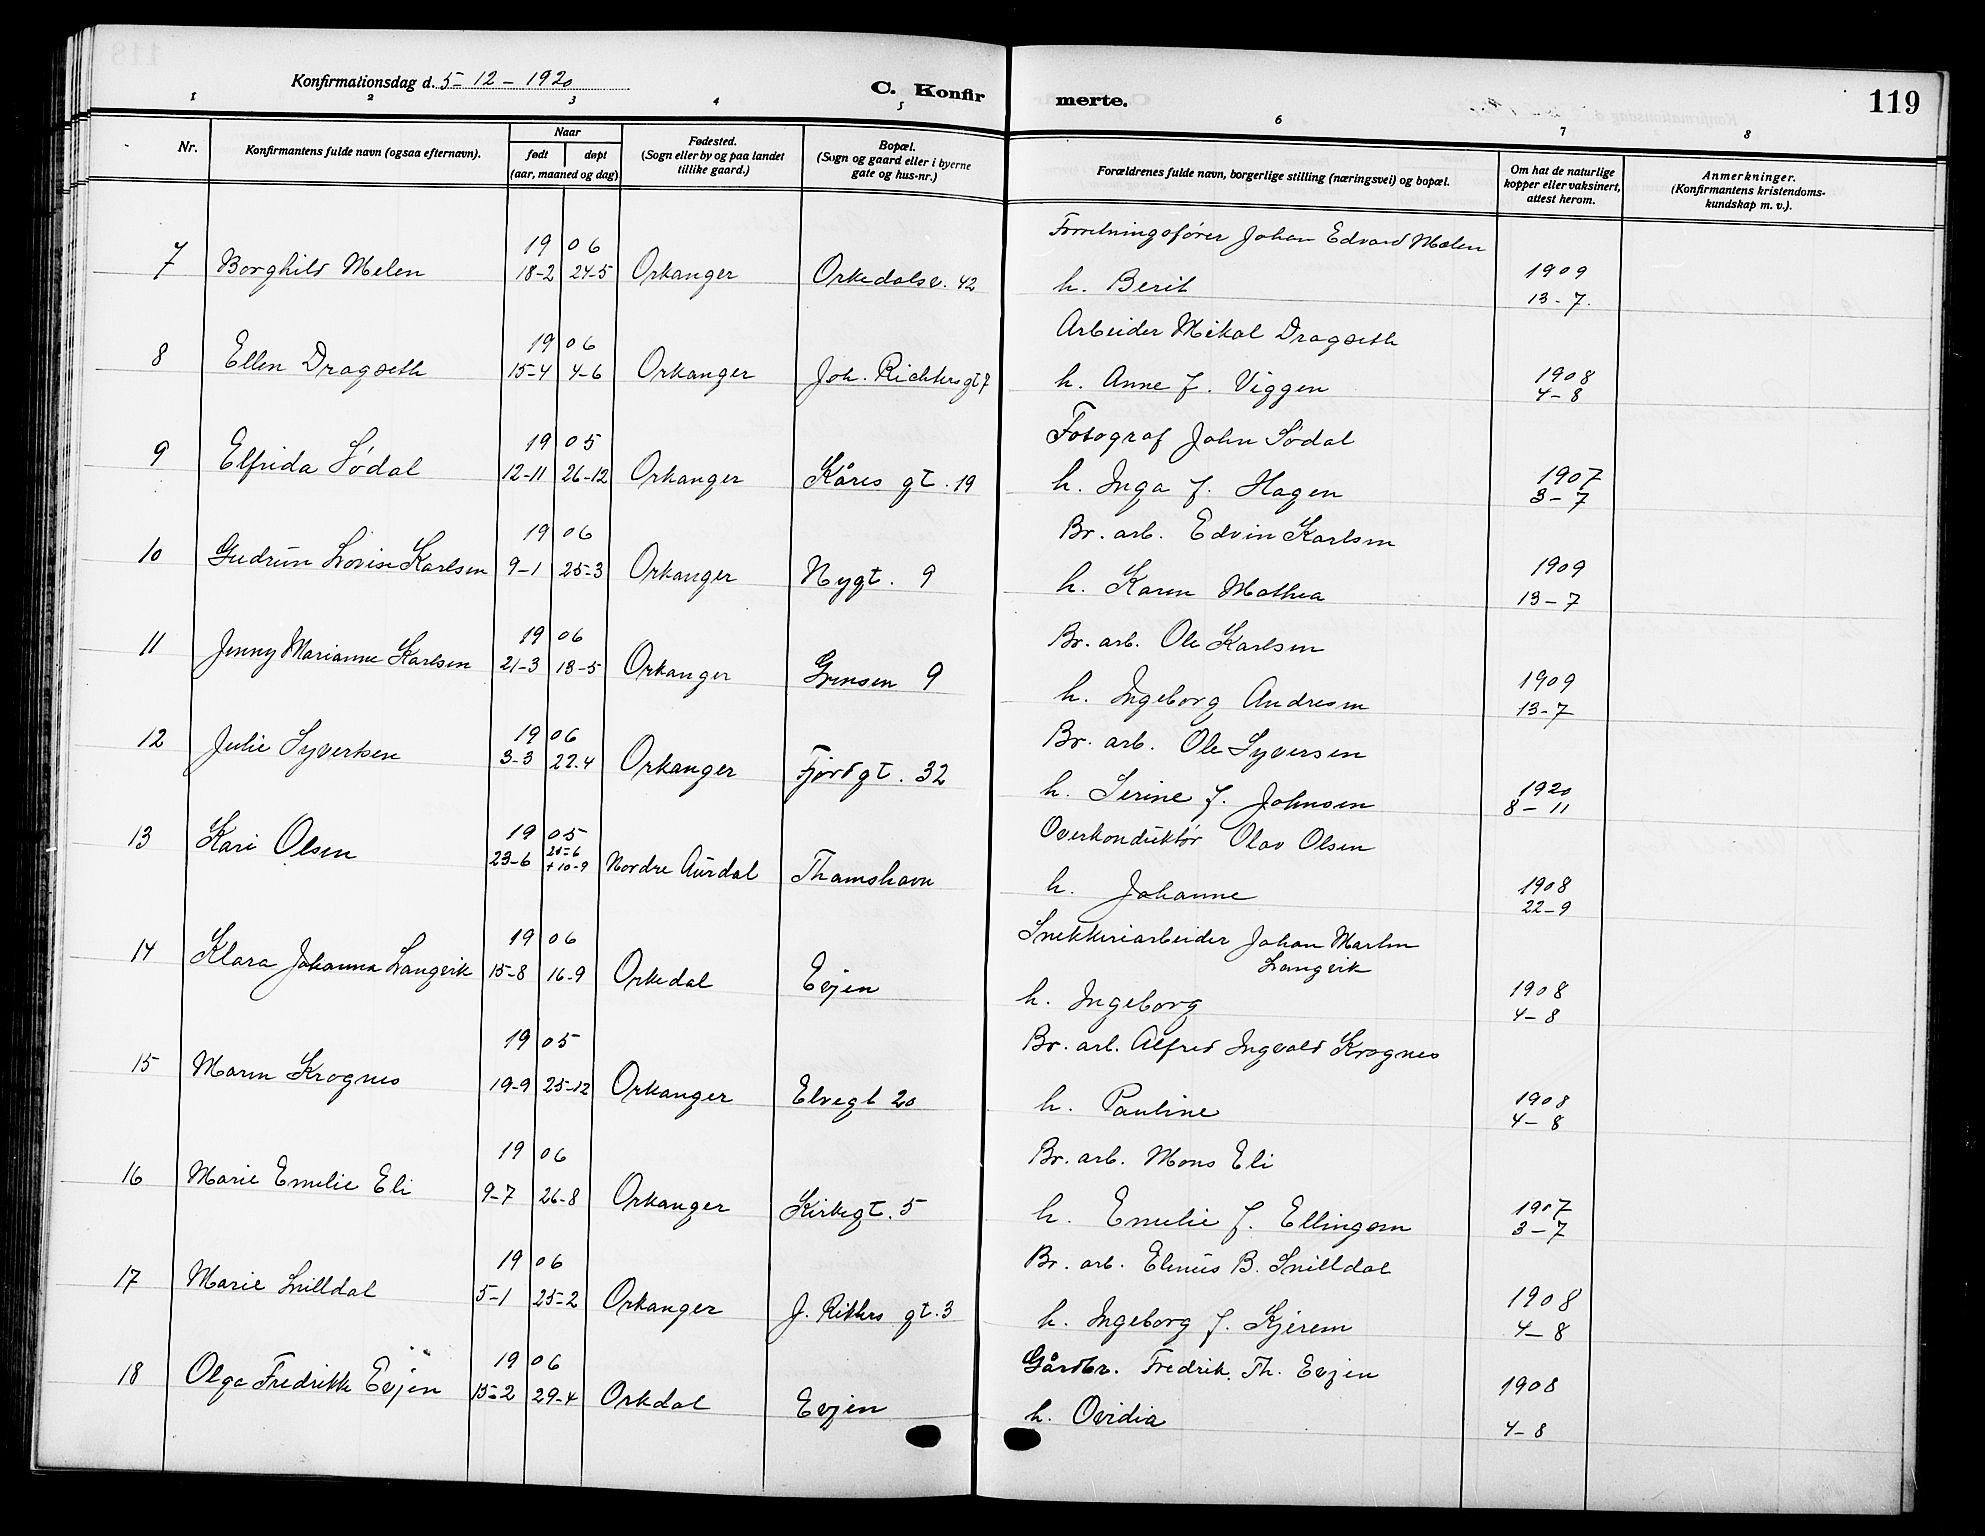 Konfirmationsdag d. 5-12-1920
C. Konfirmerte.
119
1 2 3 4 5 6 7 8
Nr.
Konfirmantens fulde navn (ogsaa efternavn).
Naar
født døpt
(aar, maaned og dag)
Fødested.
(Sogn eller by og paa landet
tillike gaard.)
Bopæl.
(Sogn og gaard eller i byerne
gate og hus-nr.)
Forældrenes fulde navn, borgerlige stilling (næringsvei) og bopæl.
Om hat de naturlige
kopper eller vaksinert,
attest herom.
Anmerkninger.
(Konfirmantens kristendoms-
kundskap m. v.).
19 06 Forretningsfører Johan Edvard Melen
7 Borghild Melen 18-2 24-5 Orkanger Orkedalsv. 42 h. Berit 1909
13-7.
19 06 Arbeider Mikal Dragseth
8 Ellen Dragseth 15-4 4-6 Orkanger Joh. Richters gt 7 h. Anne f. Viggen 1908
4-8
19 05 Fotograf John Sødal
9 Elfrida Sødal 12-11 26-12 Orkanger Kåres gt. 19 h. Inga f. Hagen 1907
3-7
19 06 Br. arb. Edvin Karlsen
10 Gudrun Lovise Karlsen 9-1 25-3 Orkanger Nygt. 9 h. Karen Mathea 1909
13-7
19 06 Br. arb. Ole Karlsen
11 Jenny Marianne Karlsen 21-3 13-5 Orkanger Grensen 9 h. Ingeborg Andresen 1909
13-7
19 06 Br. arb. Ole Syversen
12 Julie Syvertsen 3-3 22-4 Orkanger Fjordgt. 32 h. Serine f. Johnsen 1920
8-11
19 05 Overkonduktør Olav Olsen
13 Kari Olsen 23-6 25-6
+ 10-9 Nordre Aurdal Thamshavn h. Johanne 1908
22-9
19 06 Snekkeriarbeider Johan Martin
Langvik
14 Klara Johanna Langvik 15-8 16-9 Orkedal Evjen h. Ingeborg 1908
4-8
19 05 Br. arb. Alfred Ingvald Krognes
15 Maren Krognes 19-9 25-12 Orkanger Elvegt 20 h. Pauline 1908
4-8
19 06 Br. arb. Mons Eli
16 Marie Emilie Eli 9-7 26-8 Orkanger Kirkegt. 5 h. Emelie f. Ellingsen 1907
3-7
19 06 Br. arb. Elenius B. Snilldal
17 Marie Snilldal 5-1 25-2 Orkanger J. Rikters gt. 3 h. Ingeborg f. Kjerem 1908
4-8
19 06 Gårdbr. Fredrik Th. Evjen
18 Olga Fredrikke Evjen 15-2 29-4 Orkdal Evjen h. Ovidia 1908
4-8